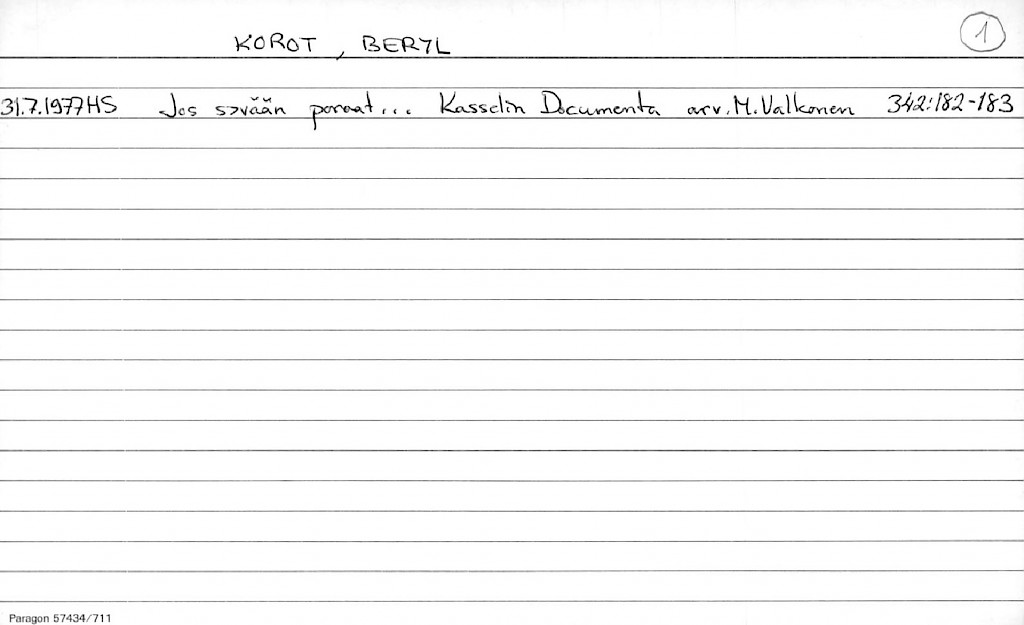 KOROT, BERYL 1
31.7.1977 HS Jos syvään poraat... Kasselin Documenta arv. M. Valkonen 342:182-183
Paragon 57434/711